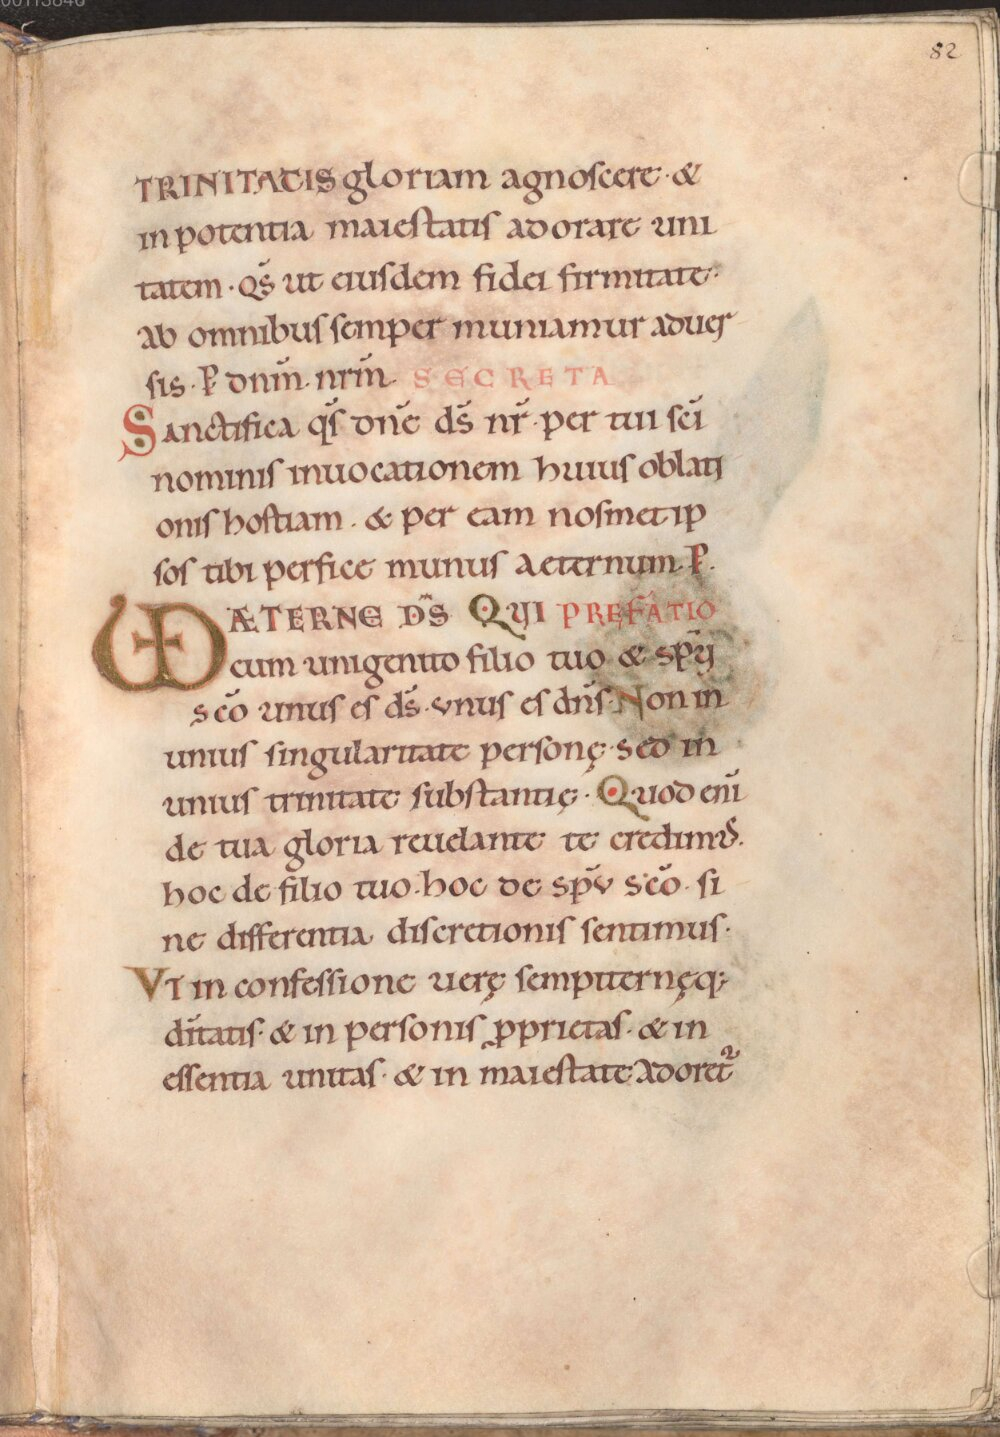 82
TRINITATIS gloriam agnoscere · &
in potentia maiestatis adorare uni
tatem · Qs̄ ut eiusdem fidei firmitate ·
ab omnibus semper muniamur aduer
sis · P̄ dnm̄ · nrm̄ · SECRETA
Sanctifica qs̄ dn̄e ds̄ nr̄ · per tui sc̄i
nominis inuocationem huius oblati
onis hostiam · & per eam nosmetip
sos tibi perfice munus aeternum · P̄ ·
VD ÆTERNE DS̄ QUI PREFATIO
cum unigenito filio tuo & sp̄ū
sc̄o unus es ds̄ · vnus es dn̄s · Non in
unius singularitate personę · sed in
unius trinitate substantię · Quod eni̅
de tua gloria reuelante te credimus ·
hoc de filio tuo · hoc de sp̄v sc̄o · si
ne differentia discretionis sentimus ·
VT in confessione uerę sempiternęq;
di̅tatis · & in personis ꝓprietas · & in
essentia unitas · & in maiestate adoret᷑